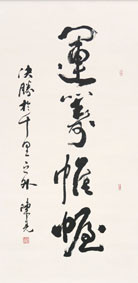 運籌帷幄
決勝於千里之外